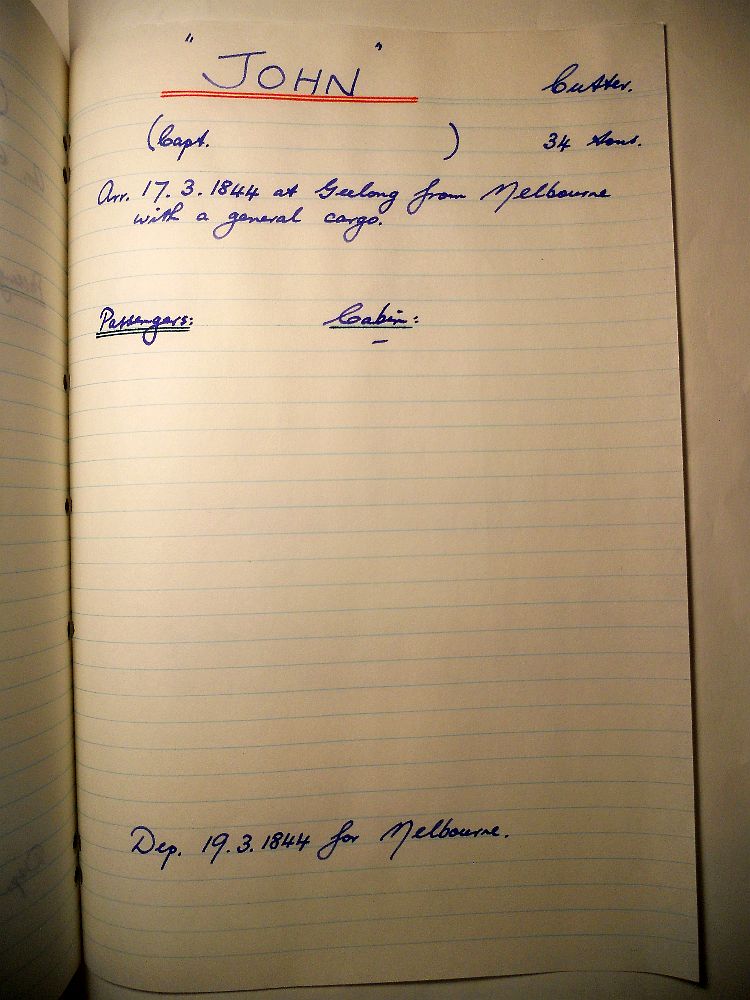 "JOHN" Cutter.
(Capt. ) 34 tons.
Arr. 17.3.1844 at Geelong from Melbourne
with a general cargo.
Passengers: Cabin:
–
Dep. 19.3.1844 for Melbourne.